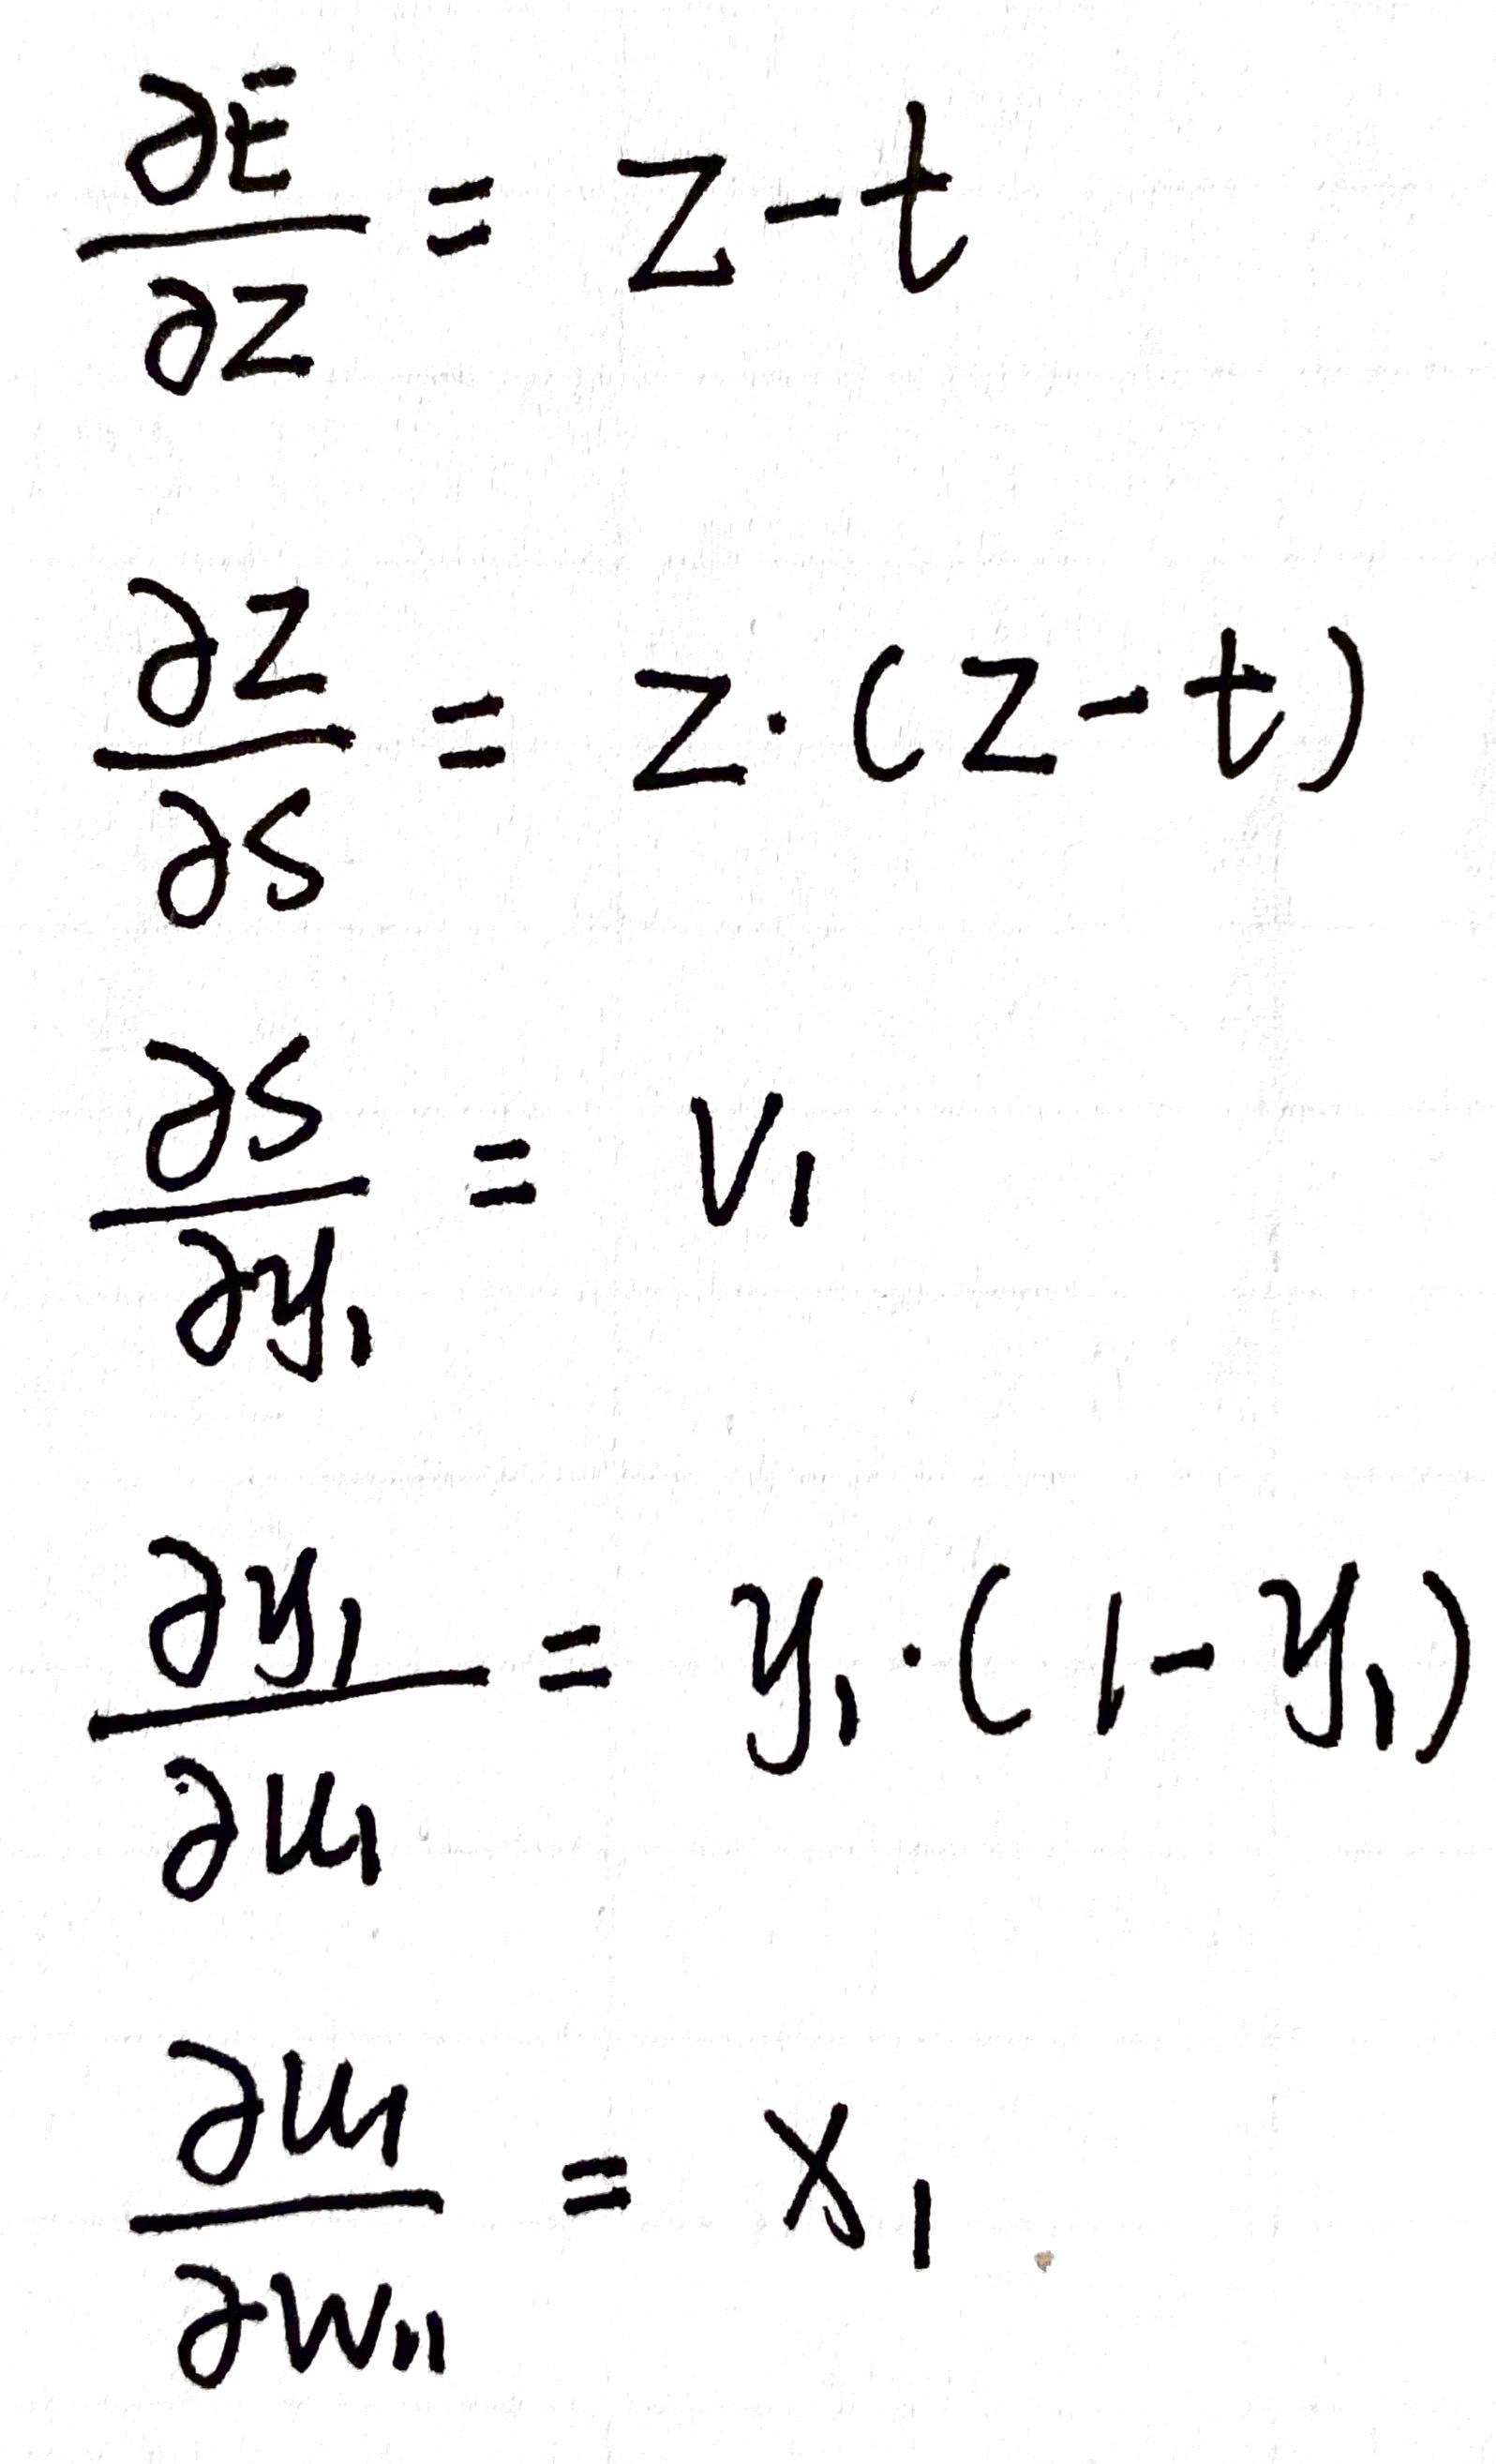 ∂E/∂z = z - t
∂z/∂s = z · (z - t)
∂s/∂y₁ = v₁
∂y₁/∂u₁ = y₁ · (1 - y₁)
∂u₁/∂w₁₁ = x₁